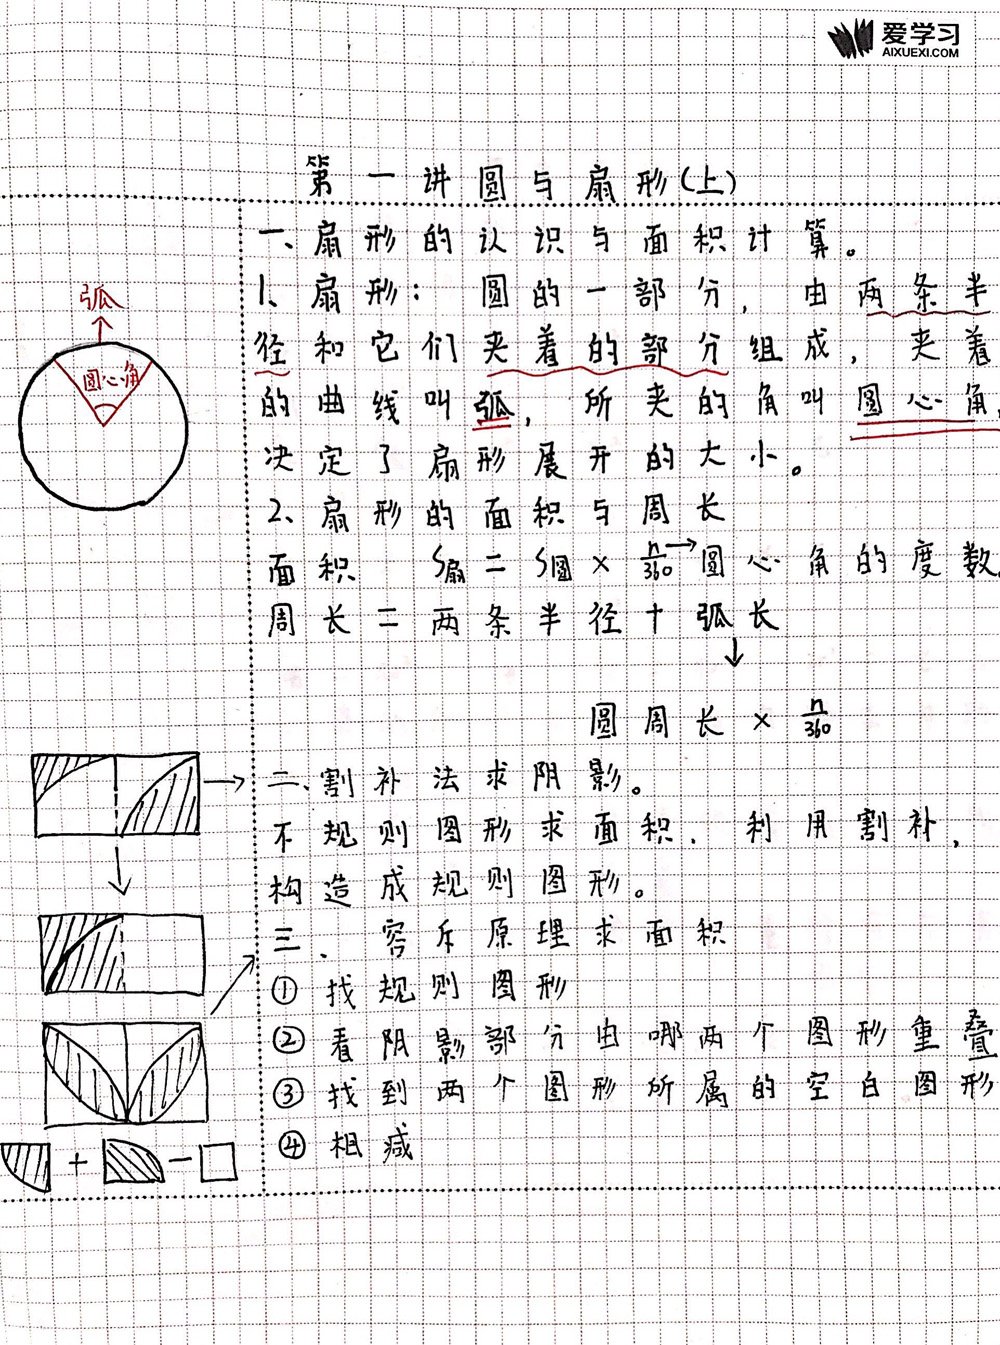 爱学习
AIXUEXI.COM
第一讲圆与扇形(上)
一、扇形的认识与面积计算。
1、扇形：圆的一部分，由两条半
径和它们夹着的部分组成，夹着
的曲线叫弧，所夹的角叫圆心角，
决定了扇形展开的大小。
2、扇形的面积与周长
面积 S扇=S圆×n/360→圆心角的度数。
周长=两条半径+弧长
↓
圆周长×n/360
二、割补法求阴影。
不规则图形求面积，利用割补，
构造成规则图形。
三、容斥原理求面积
①找规则图形
②看阴影部分由哪两个图形重叠
③找到两个图形所属的空白图形
④相减
弧
圆心角
+ −